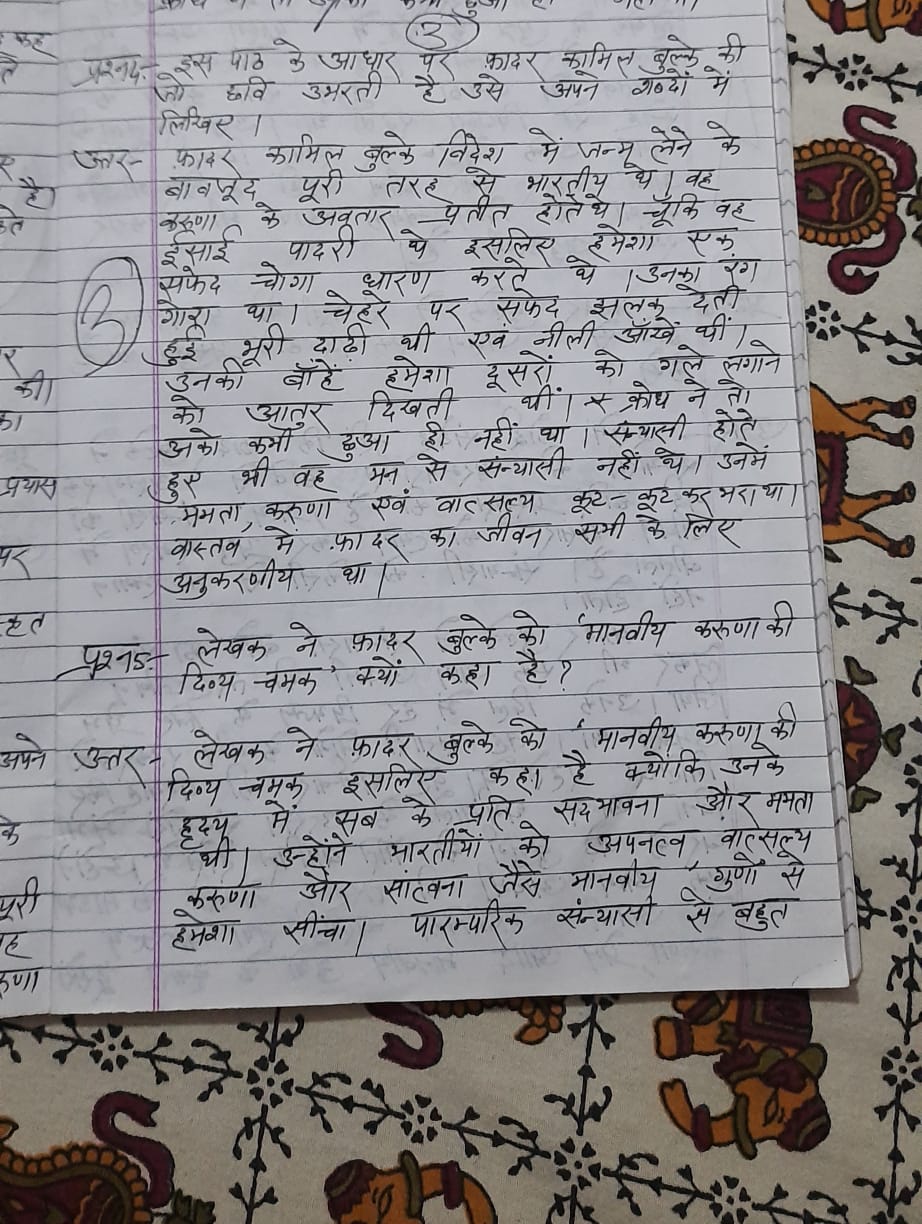 3
प्रश्न4.- इस पाठ के आधार पर फ़ादर कामिल बुल्के की
जो छवि उभरती है उसे अपने शब्दों में
लिखिए।
उत्तर- फ़ादर कामिल बुल्के विदेश में जन्म लेने के
बावजूद पूरी तरह से भारतीय थे। वह
करुणा के अवतार प्रतीत होते थे। चूँकि वह
ईसाई पादरी थे इसलिए हमेशा एक
सफेद चोगा धारण करते थे। उनका रंग
गोरा था। चेहरे पर सफेद झलक देती
हुई भूरी दाढ़ी थी एवं नीली आँखें थीं।
3
उनकी बाँहें हमेशा दूसरों को गले लगाने
को आतुर दिखती थीं। क्रोध ने तो
उनको कभी छुआ ही नहीं था। सन्यासी होते
हुए भी वह मन से सन्यासी नहीं थे। उनमें
ममता, करुणा एवं वात्सल्य कूट-कूट कर भरा था।
वास्तव में फ़ादर का जीवन सभी के लिए
अनुकरणीय था।
प्रश्न5.- लेखक ने फ़ादर बुल्के को 'मानवीय करुणा की
दिव्य चमक' क्यों कहा है?
उत्तर- लेखक ने फ़ादर बुल्के को 'मानवीय करुणा की
दिव्य चमक इसलिए कहा है क्योंकि उनके
हृदय में सब के प्रति सदभावना और ममता
थी। उन्होंने भारतीयों को अपनत्व वात्सल्य
करुणा और सांत्वना जैसे मानवीय गुणों से
हमेशा सींचा। पारम्परिक संन्यासी से बहुत
है।
की।
प्रयास
पर
अपने
के
पूरी